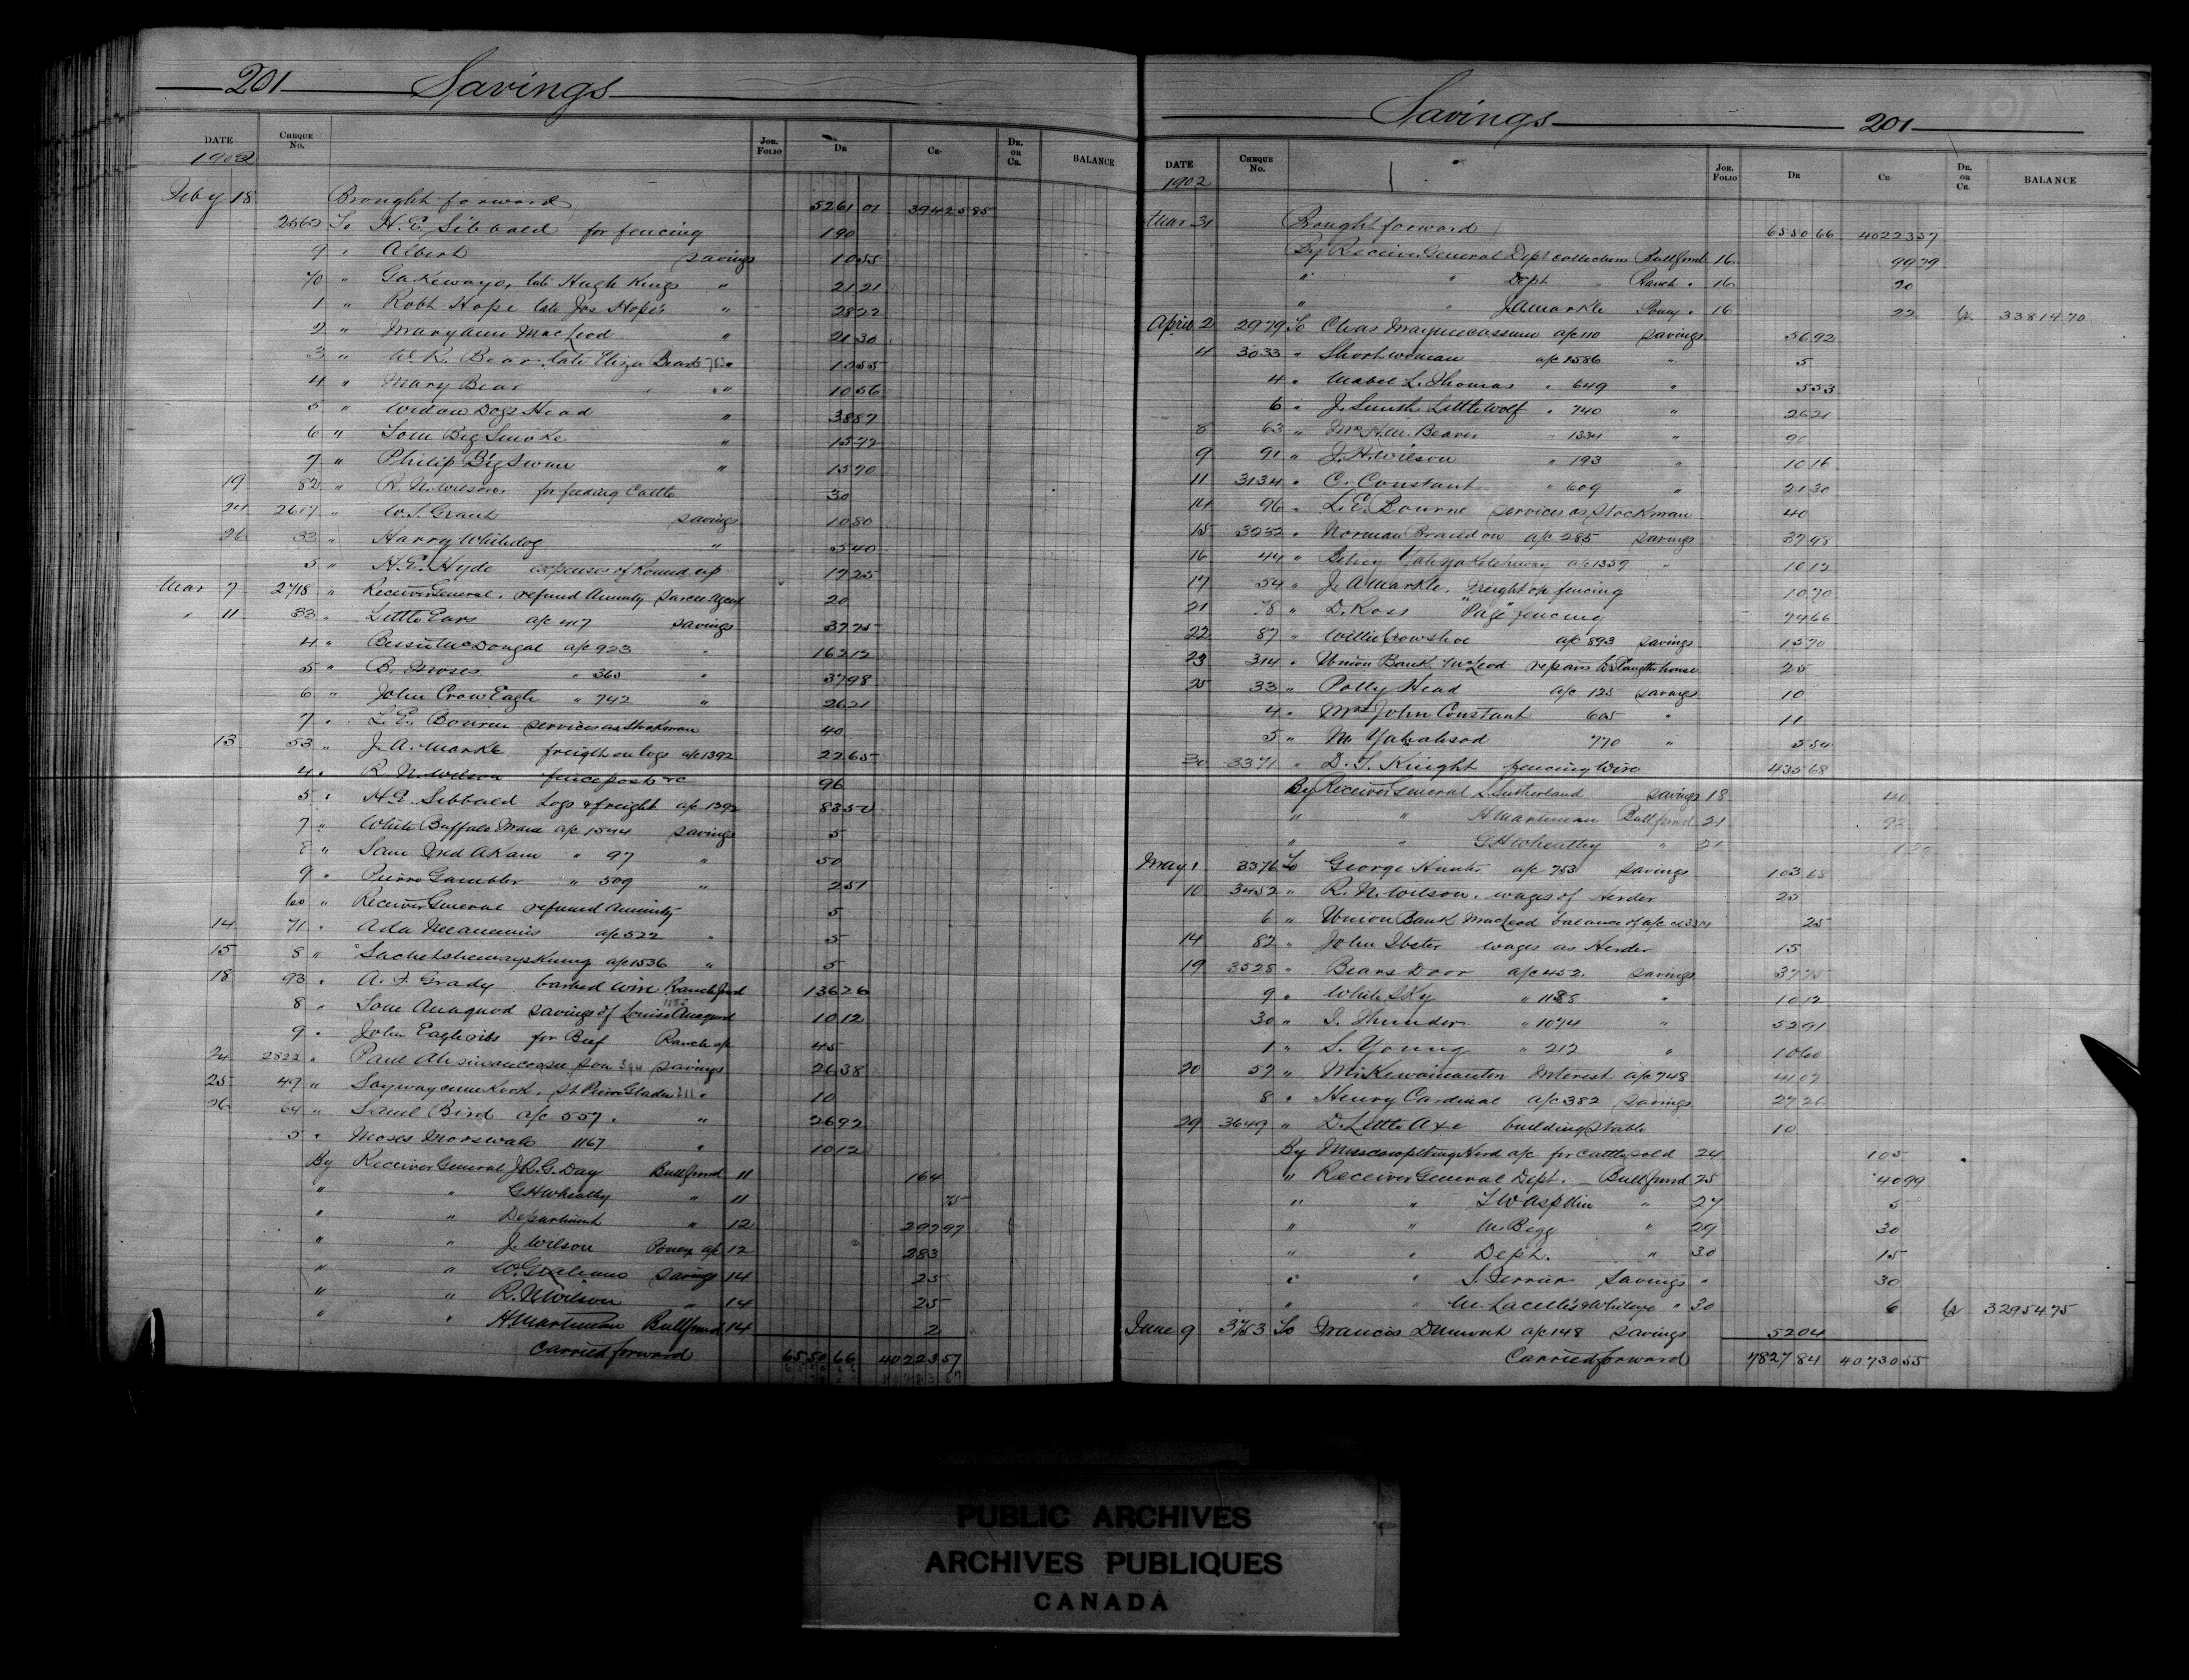 201 Savings
DATE CHEQUE No. JOR. FOLIO DR CR. DR. OR CR. BALANCE
1902
Feby 18 Brought forward 5261 01 39425 85
2568 To H.E. Sibbald for fencing 190
9 " Albert savings 10 55
70 " Gakewayo, late Hugh Kings " 21 21
1 " Robt Hope late Jos Hope's " 28 22
2 " Mary Ann MacLeod " 21 30
3 " W.K. Bear, late Eliza Bears " 10 55
4 " Mary Bear " " 10 56
5 " Widow Dogs Head " 38 87
6 " Tom Big Smoke " 15 77
7 " Philip Big Swan " 15 70
19 82 " R.N. Wilson for feeding Cattle 30
24 2617 " W.S. Grant savings 10 80
26 33 " Harry Whitedog " 5 40
5 " H.E. Hyde expenses of Round up 17 25
Mar 7 2718 " Receiver General, refund Annuity Sarcee Agency 20
" 11 33 " Little Ears a/c 417 savings 37 75
4 " McDougal a/c 923 " 162 12
5 " B. Moses " 365 " 37 98
6 " John Crow Eagle " 742 " 26 21
7 " L.E. Bourne services as Stockman 40
13 53 " J.A. Markle freight on logs a/c 1392 22 65
4 " R.N. Wilson fence posts &c 96
5 " H.E. Sibbald Logs & freight a/c 1392 83 50
7 " White Buffalo a/c 1544 savings 5
8 " Sam " 97 " 50
9 " Pierre Gambler " 509 " 2 51
60 " Receiver General refund Annuity 5
14 71 " Ada a/c 522 " 5
15 8 " a/c 1536 " 5
18 93 " A.F. Grady barbed wire Ranch fund 136 26
8 " Tom Anaquod savings of Louisa Anaquod 10 12
9 " John Eagleribs for Beef Ranch a/c 45
24 2822 " Paul savings 26 38
25 49 " St Pierre Gladu " 10
26 64 " Saml Bird a/c 557 " " 26 92
5 " Moses 1167 " 10 12
By Receiver General J.R.G. Day Bull fund 11 164
" " G H Wheatley " 11 75
" " Department " 12 297 97
" " J. Wilson Poney a/c 12 283
" " W. Graham savings 14 25
" " R.N. Wilson " 14 25
" " H Martineau Bull fund 14 2
Carried forward 6550 66 40223 57
Savings 201
DATE CHEQUE No. JOR. FOLIO DR CR. DR. OR CR. BALANCE
1902
Mar 31 Brought forward 6550 66 40223 57
By Receiver General Dept collections Bull fund 16 99 79
" " Dept " Ranch " 16 20
" " J A Markle Poney " 16 22 Cr 33814.70
April 2 2979 To Chas a/c 110 savings 56 92
4 3033 " Shortwoman a/c 1586 " 5
4 " Mabel L. Thomas " 649 " 5 53
6 " J. Smith Little Wolf " 740 " 26 21
8 63 " Mrs H.M. Beaver " 1334 " 90
9 91 " J.H. Wilson " 193 " 10 16
11 3134 " C. Constant " 609 " 21 30
14 96 " L.E. Bourne services as Stockman 40
15 3232 " Norman Brandon a/c 285 savings 37 98
16 44 " Betsey a/c 1359 " 10 12
17 54 " J. A Markle, freight on fencing 10 70
21 78 " D. Ross "Page" fencing 74 66
22 87 " Willie Crowshoe a/c 893 savings 15 70
23 314 " Union Bank McLeod repairs to Slaughterhouse 25
25 33 " Polly Head a/c 125 savings 10
4 " Mrs John Constant 605 " 11
5 " M. Yahahsod 770 " 5 54
30 3371 " D.S. Knight fencing wire 435 68
By Receiver General S. Sutherland savings 18 40
" " H Martineau Bull fund 21 92
" " G H Wheatley " 21
May 1 3376 To George Hunter a/c 753 savings 103 68
10 3452 " R.N. Wilson, wages of Herder 25
6 " Union Bank MacLeod balance of a/c 25
14 82 " John wages as Herder 15
19 3528 " Bears Door a/c 452 savings 37 75
9 " White Sky " 1188 " 10 12
30 " I. Thunder " 1074 " 52 91
1 " S. Young " 212 " 10 60
20 57 " Mirkewaineanton Interest a/c 748 41 07
8 " Henry Cardinal a/c 382 savings 27 26
29 3649 " D. Little Axe building stable 10
By Herd a/c for cattle sold 24 105
" Receiver General Dept. Bull fund 25 40 99
" " T W Aspdin " 27 5
" " M. Begg " 29 30
" " Dept. " 30 15
" " S. Ferrier Savings " 30
" " " 30 6 Cr 32954.75
June 9 3753 To Francis Dumont a/c 148 savings 52 04
Carried forward 7827 84 40730 55
PUBLIC ARCHIVES
ARCHIVES PUBLIQUES
CANADA